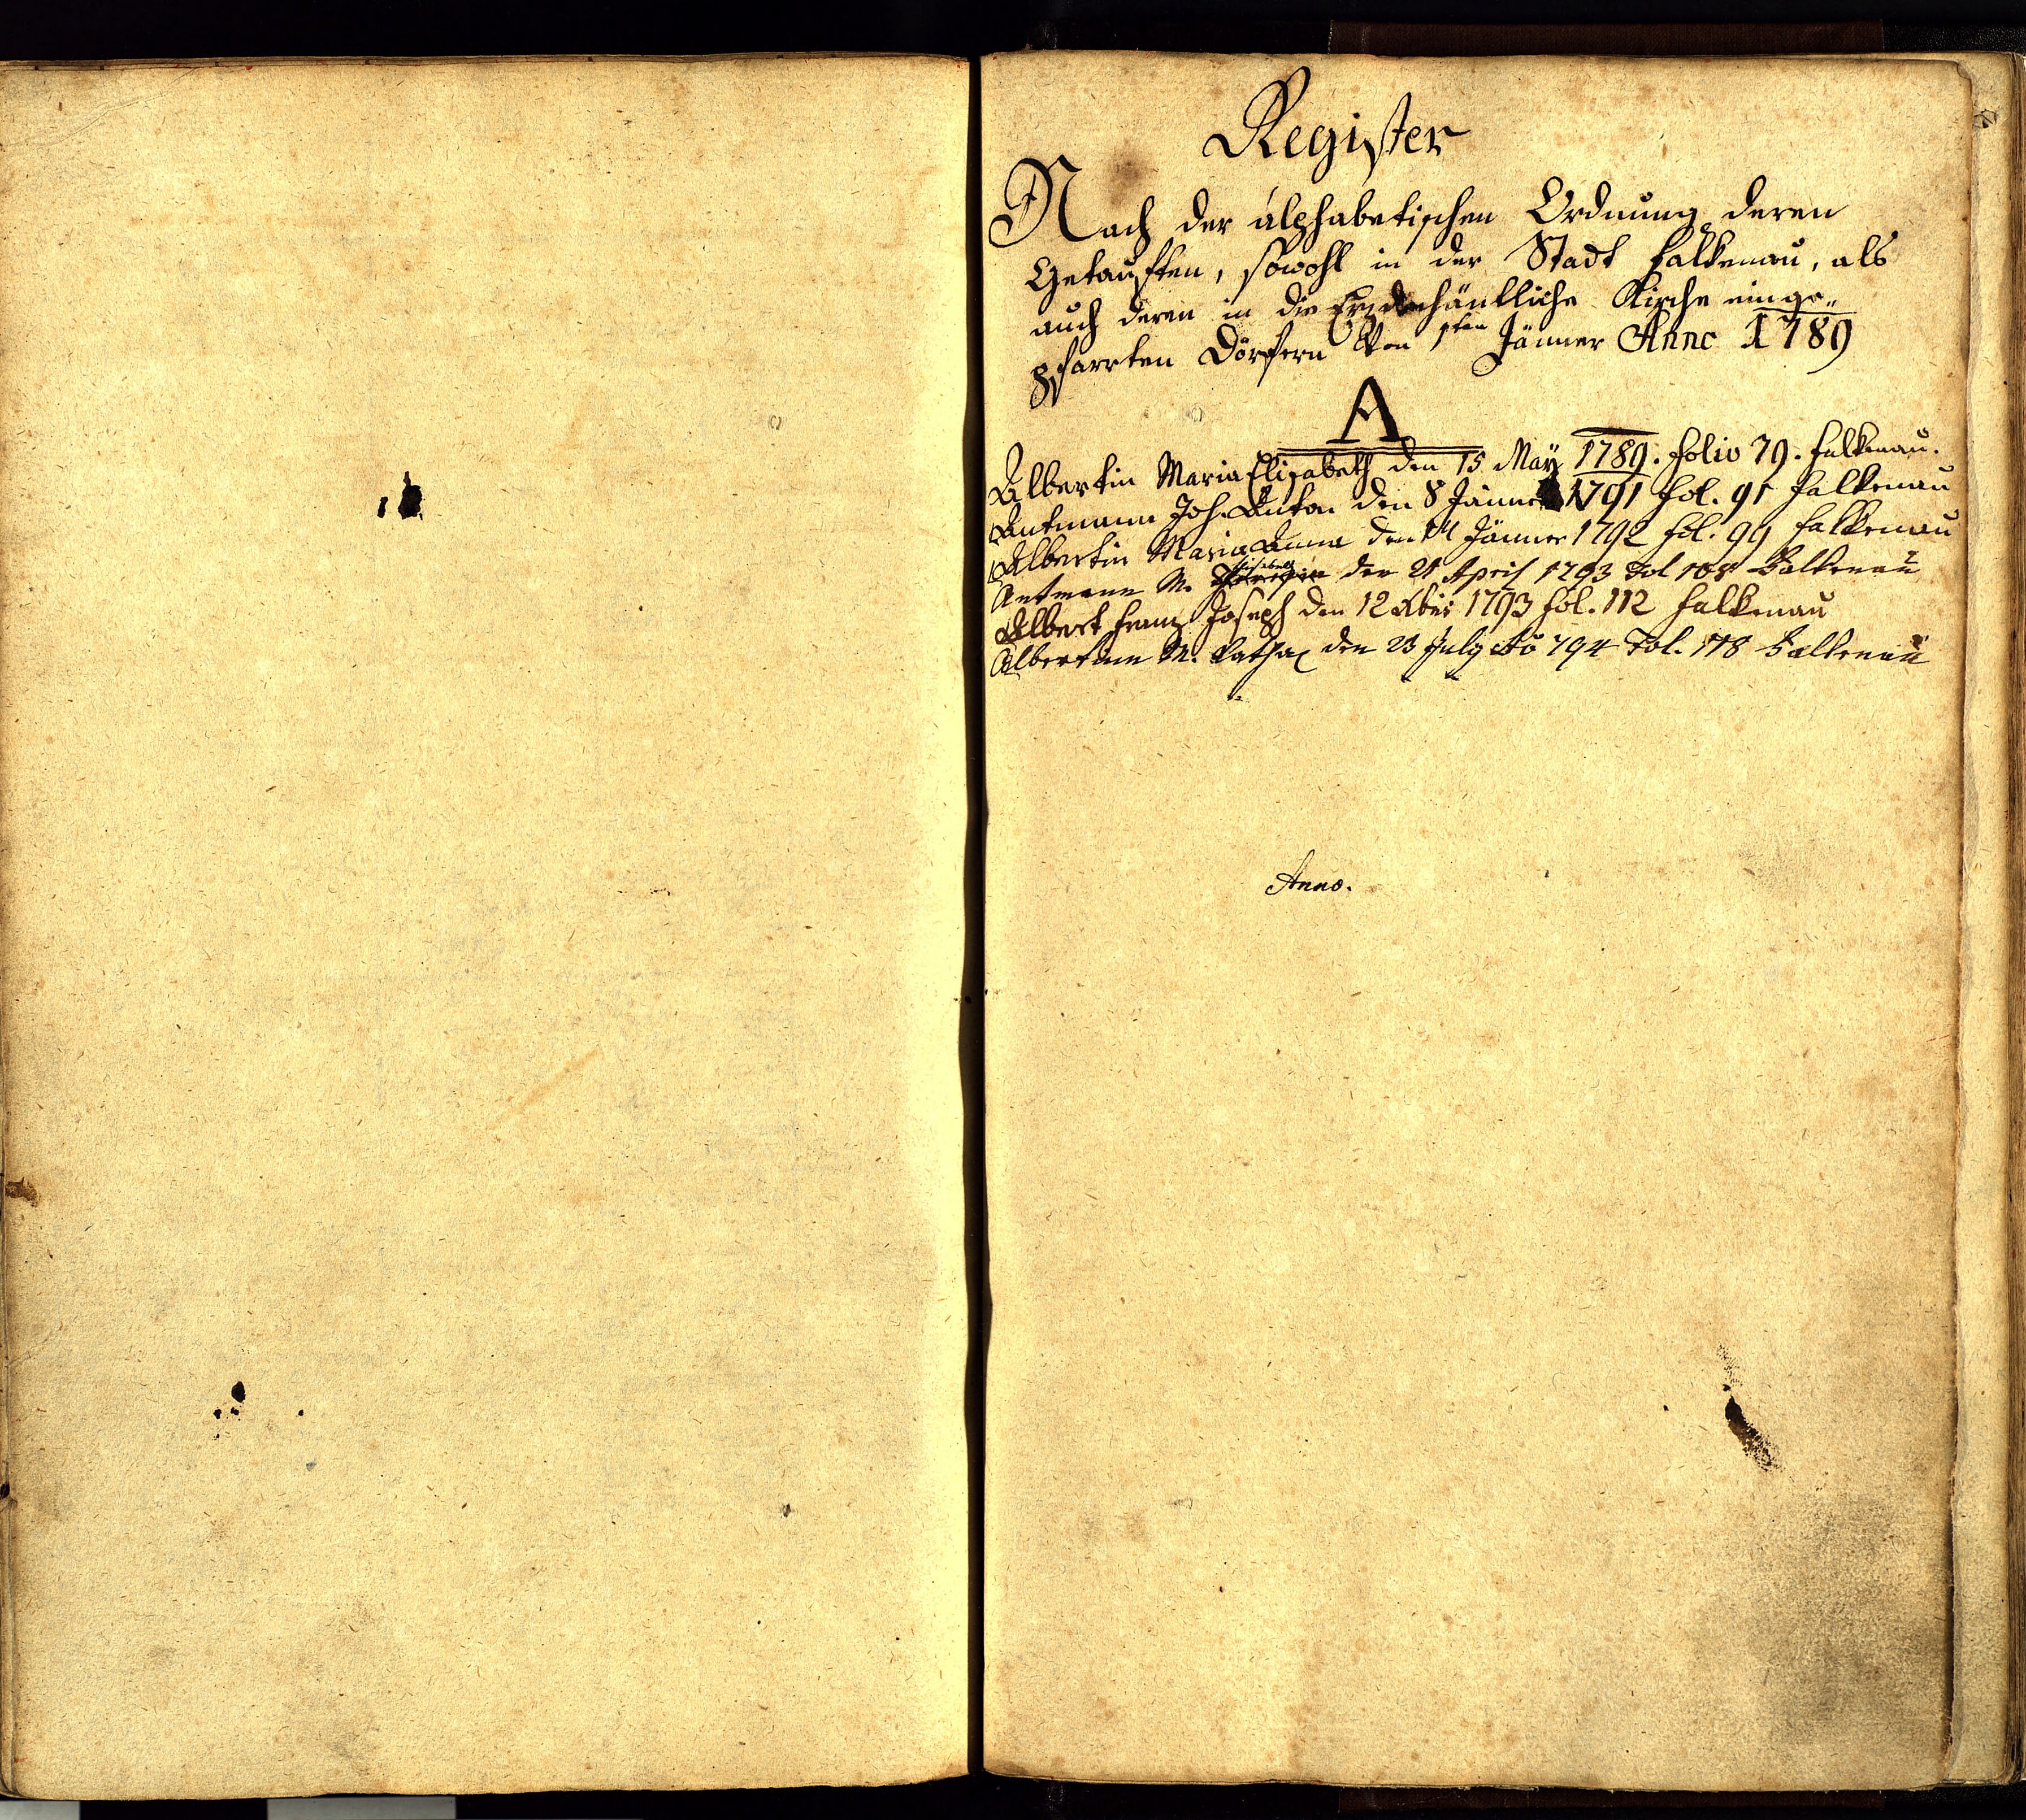 Register
Nach der alphabetischen Ordnung deren
Getauften, sowohl in der Stadt Falkenau, als
auch deren in die Erzdechäntliche Kirche einge„
pfarrten Dörfern Von 1sten Jänner Anno 1789
A
Albertin Maria Elisabeth den 15 Maÿ 1789. folio 79. Falkenau.
Antmann Joh. Anton den 8 Jänner 1791 fol. 91 Falkenau
Albertin Maria Anna den 14 Jänner 1792 fol. 99 Falkenau
Elisabeth
Antmann M. den 21 April 1793 Fol 108 Falkenau
Albert Franz Joseph den 12 Xbris 1793 fol. 112 Falkenau
Albertinn M. Cathar den 23 July Ao 794 Fol. 118 Falkenau
Anno.